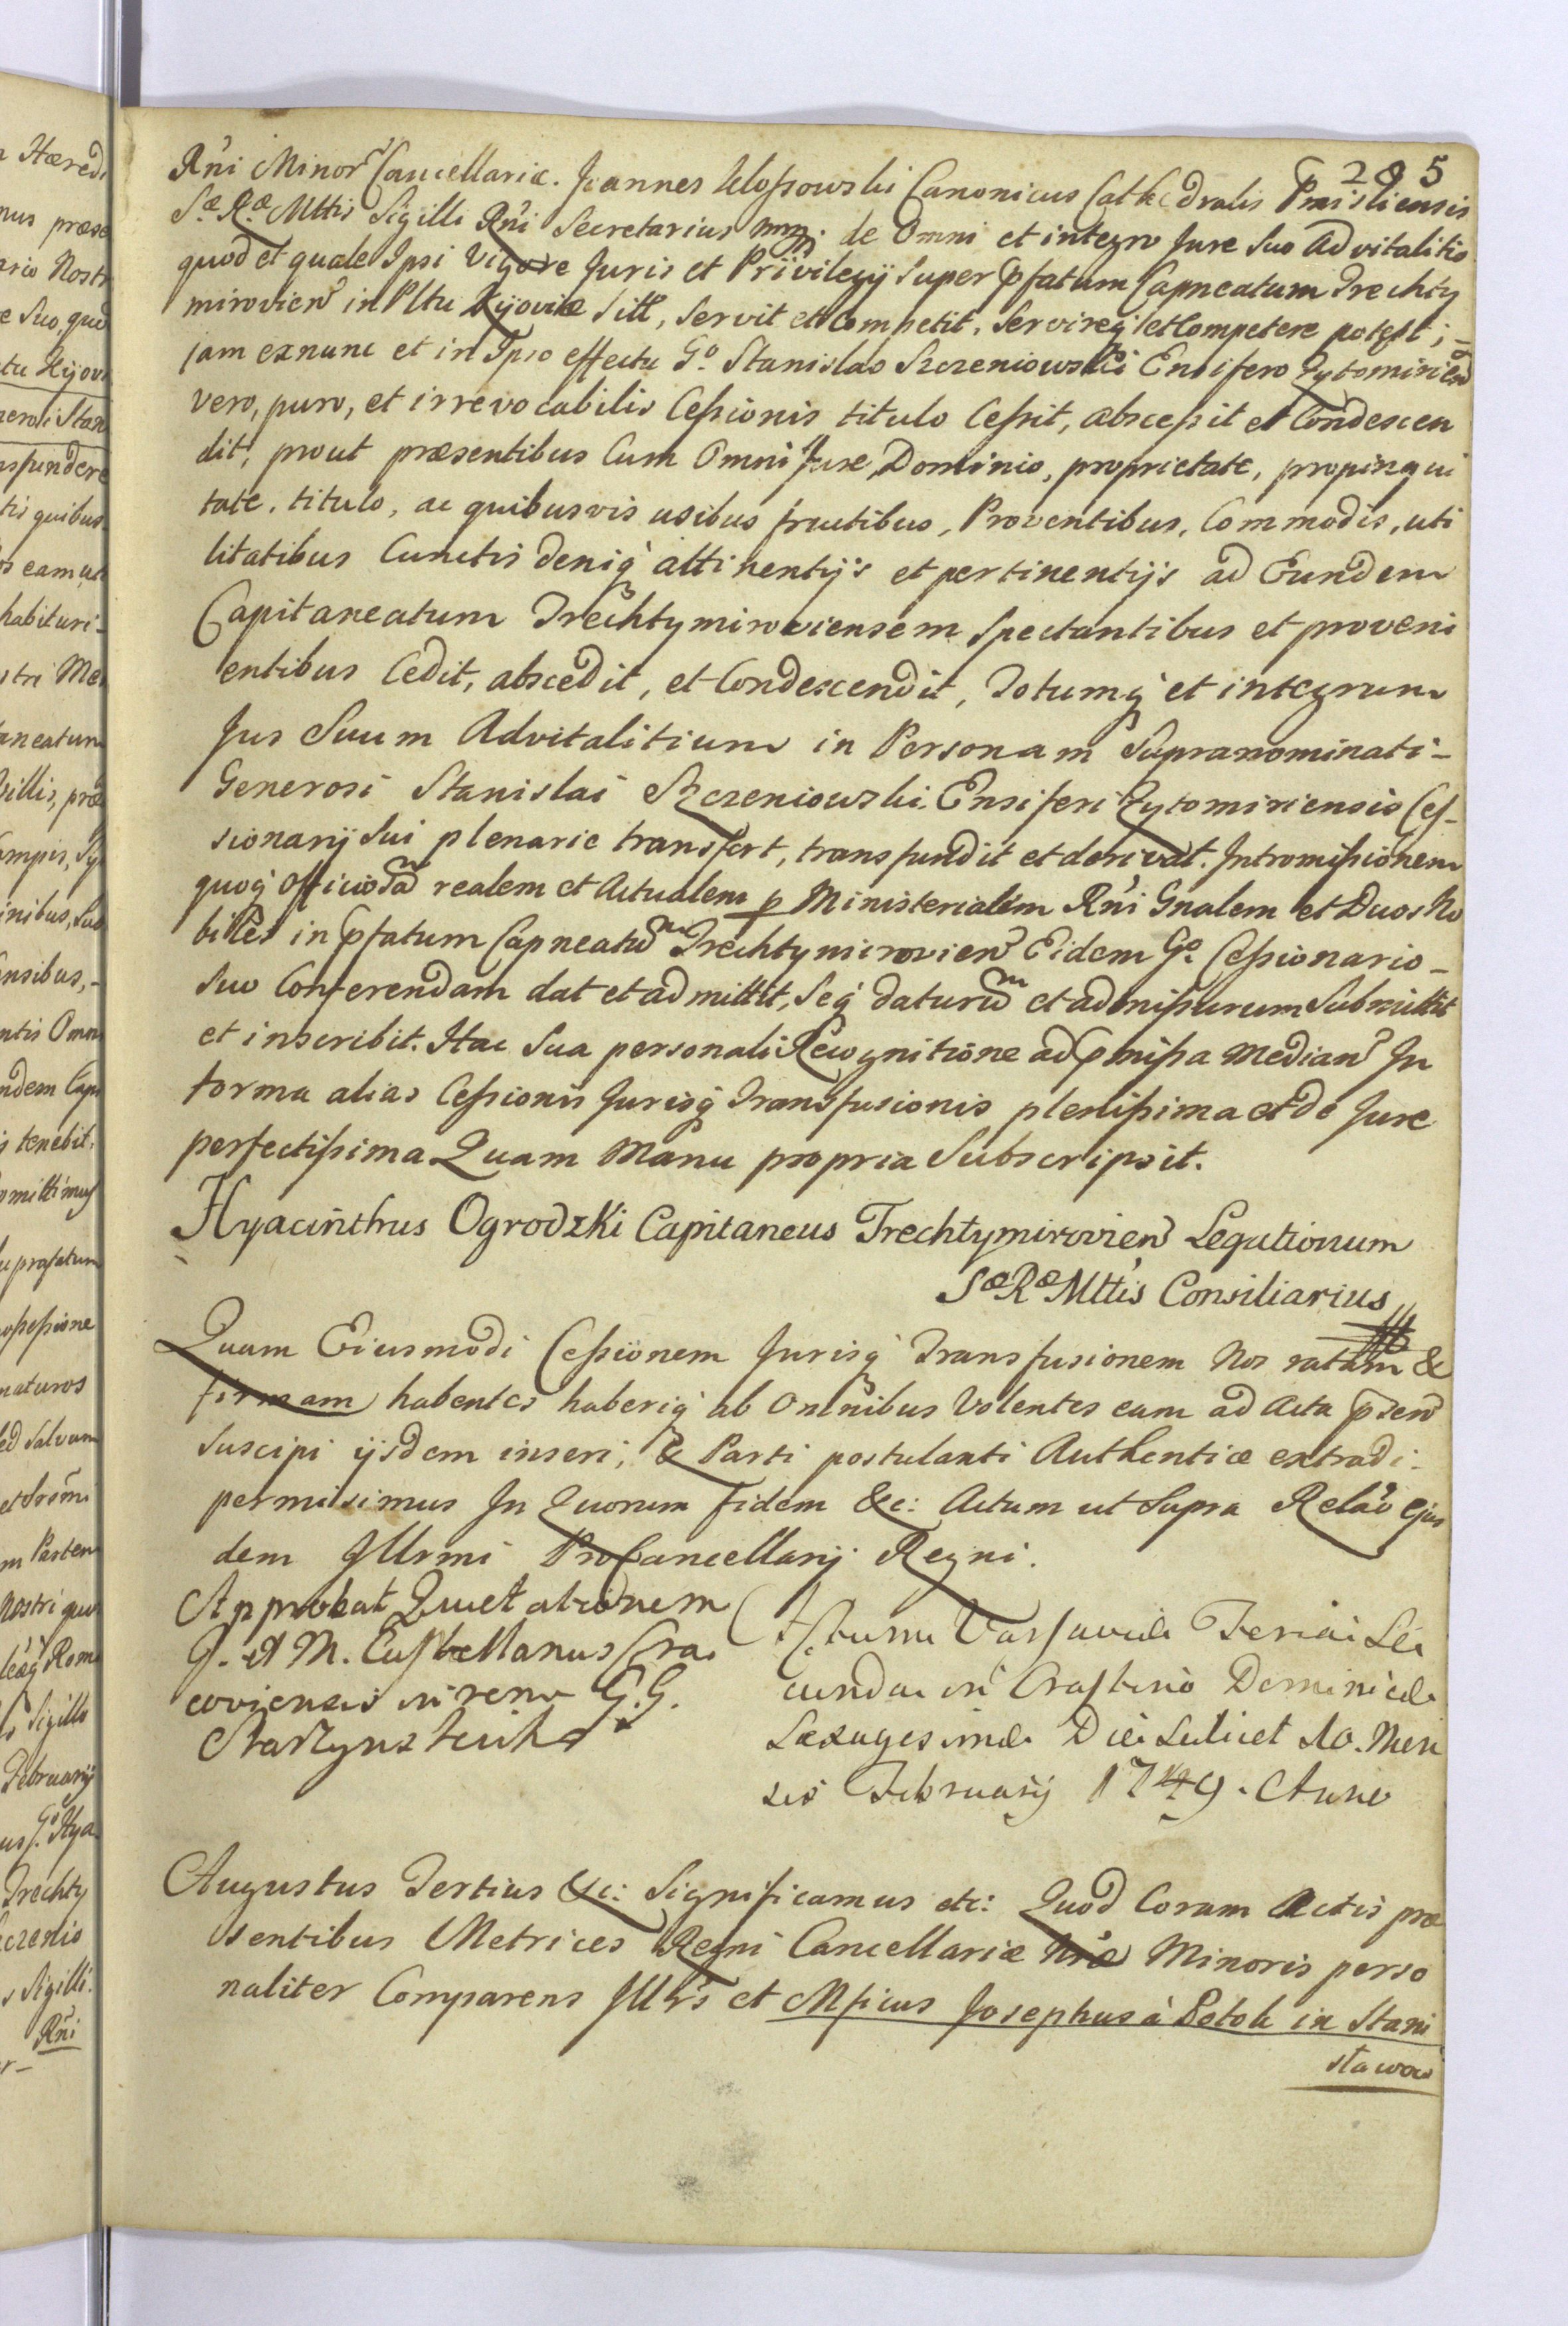 205
Rñi Minor Cancellariæ. Joannes Klossowski Canonicus Cathedralis Pmisliensis
Sæ Ræ Mttis Sigilli Rñi Secretarius mpp. de Omni et integro Jure Suo Advitalitio
quod et quale Ipsi Vigore Juris et Privilegij Super Pfatum Capneatum Trechty
mirovien in Pltu Kijoviæ Sitt, Servit et Competit, Servireq et Competere potest; –
jam exnunc et in Ipso effectu Go. Stanislao Szczeniowski Ensifero Zytomirien
vero, puro, et irrevocabilis Cessionis titulo Cessit, abscessit et Condescen
dit, prout præsentibus Cum Omni Jure, Dominio, proprietate, propinqui
tate, titulo, ac quibusvis usibus fructibus, Proventibus, Commodis, uti
litatibus Cunctis deniq attinentijs et pertinentijs ad Eundem
Capitaneatum Trechtymiroviensem Spectantibus et proveni
entibus Cedit, abscedit, et Condescendit, Totumq et integrum
Jus Suum Advitalitium in Personam Supranominati –
Generosi Stanislai Szczeniowski Ensiferi Zytomiriensis Ces-
sionarij Sui plenarie transfert, transfundit et derivat. Intromissionem
quoq Officiosam realem et Actualem p Ministerialem Rñi Gnalem et Duos No
biles in Pfatum Capneatum Trechtymirovien Eidem Go. Cessionario –
Suo Conferendam dat et admittit, Seq daturum et admissurum Submittit
et inscribit. Hac Sua personali Recognitione ad Pmissa Median In
forma alias Cessionis Jurisq Transfusionis plenissima et de Jure
perfectissima Quam Manu propria Subscripsit.
Hyacinthus Ogrodzki Capitaneus Trechtymirovien Legationum
Sæ Ræ Mttis Consiliarius
Quam Eiusmodi Cessionem Jurisq Transfusionem Nos ratam &
firmam habentes haberiq ab Omnibus Volentes eam ad Acta Psen
Suscipi ijsdem inseri, & Parti postulanti Authentice extradi –
permisimus In Quorum fidem &c: Actum ut Supra Relao ejus
dem Illrmi ProCancellarij Regni.
Approbat Quietationem
J. A M. Castellanus Cra
coviensis in rem G.G.
Actum Varsaviæ Feria Se
cunda in Crastino Dominicæ
Sexagesimæ Die Scilicet 10. Men
sis February 1749. Anno
Augustus Tertius &c: Significamus etc: Quod Coram Actis præ
sentibus Metrices Regni Cancellariæ Nræ Minoris perso
naliter Comparens Illrs et Mficus Josephus à Potok in Stani
sławow